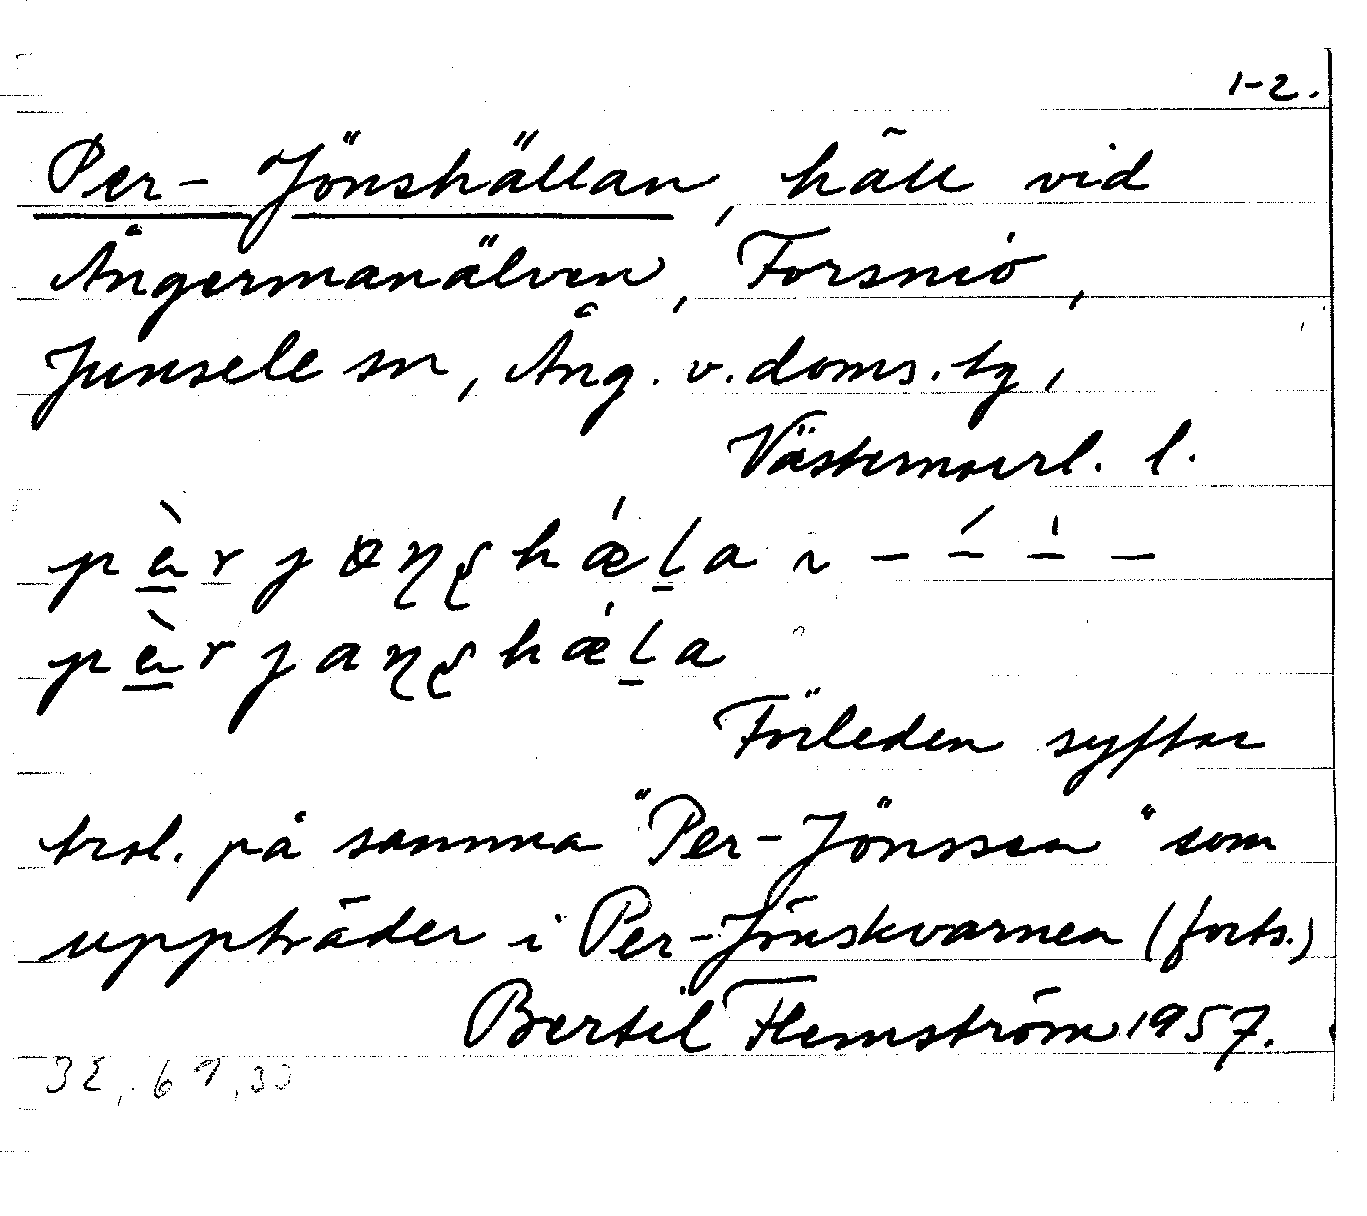 1-2.
Per-Jönshällan, häll vid
Ångermanälven, Forsnio,
Junsele sn, Ång. v. doms. tg,
Västernorrl. l.
pèr jɶɳʂhǽḷa ~ – – – –
pèr jaɳʂhǽḷa
Förleden syftar
trol. på samma "Per-Jönssen" som
uppträder i Per-Jönskvarnen (forts.)
Bertil Flemström 1957.